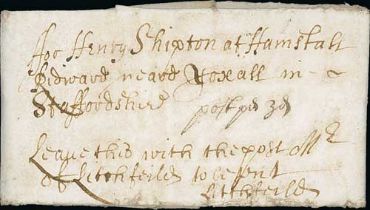 For Henry Shipton at Hamstall
Ridward neard Yoxall in
Staffordshire post pd 3d
Leave this with the post Mr
of Litchfeild to be sent
Litchfeild